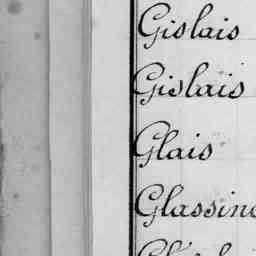 Gislais
Gislais
Glais
Glassine